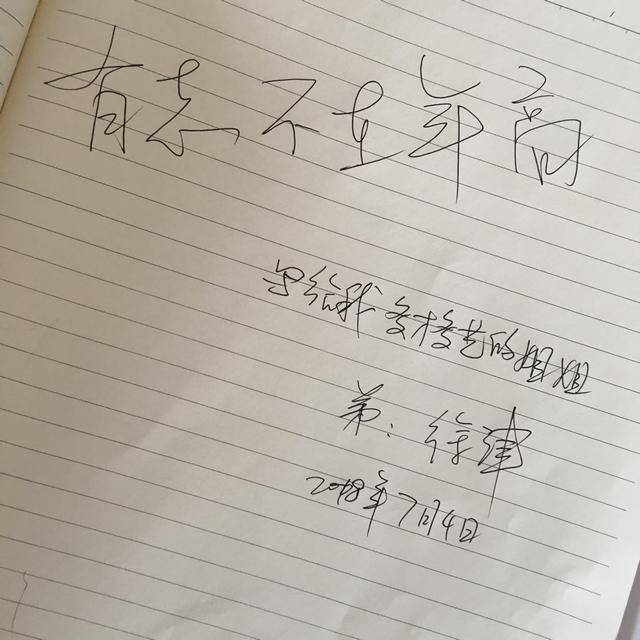 有志不在年高
写给我多才多艺的姐姐
弟：徐建
2018年7月4日